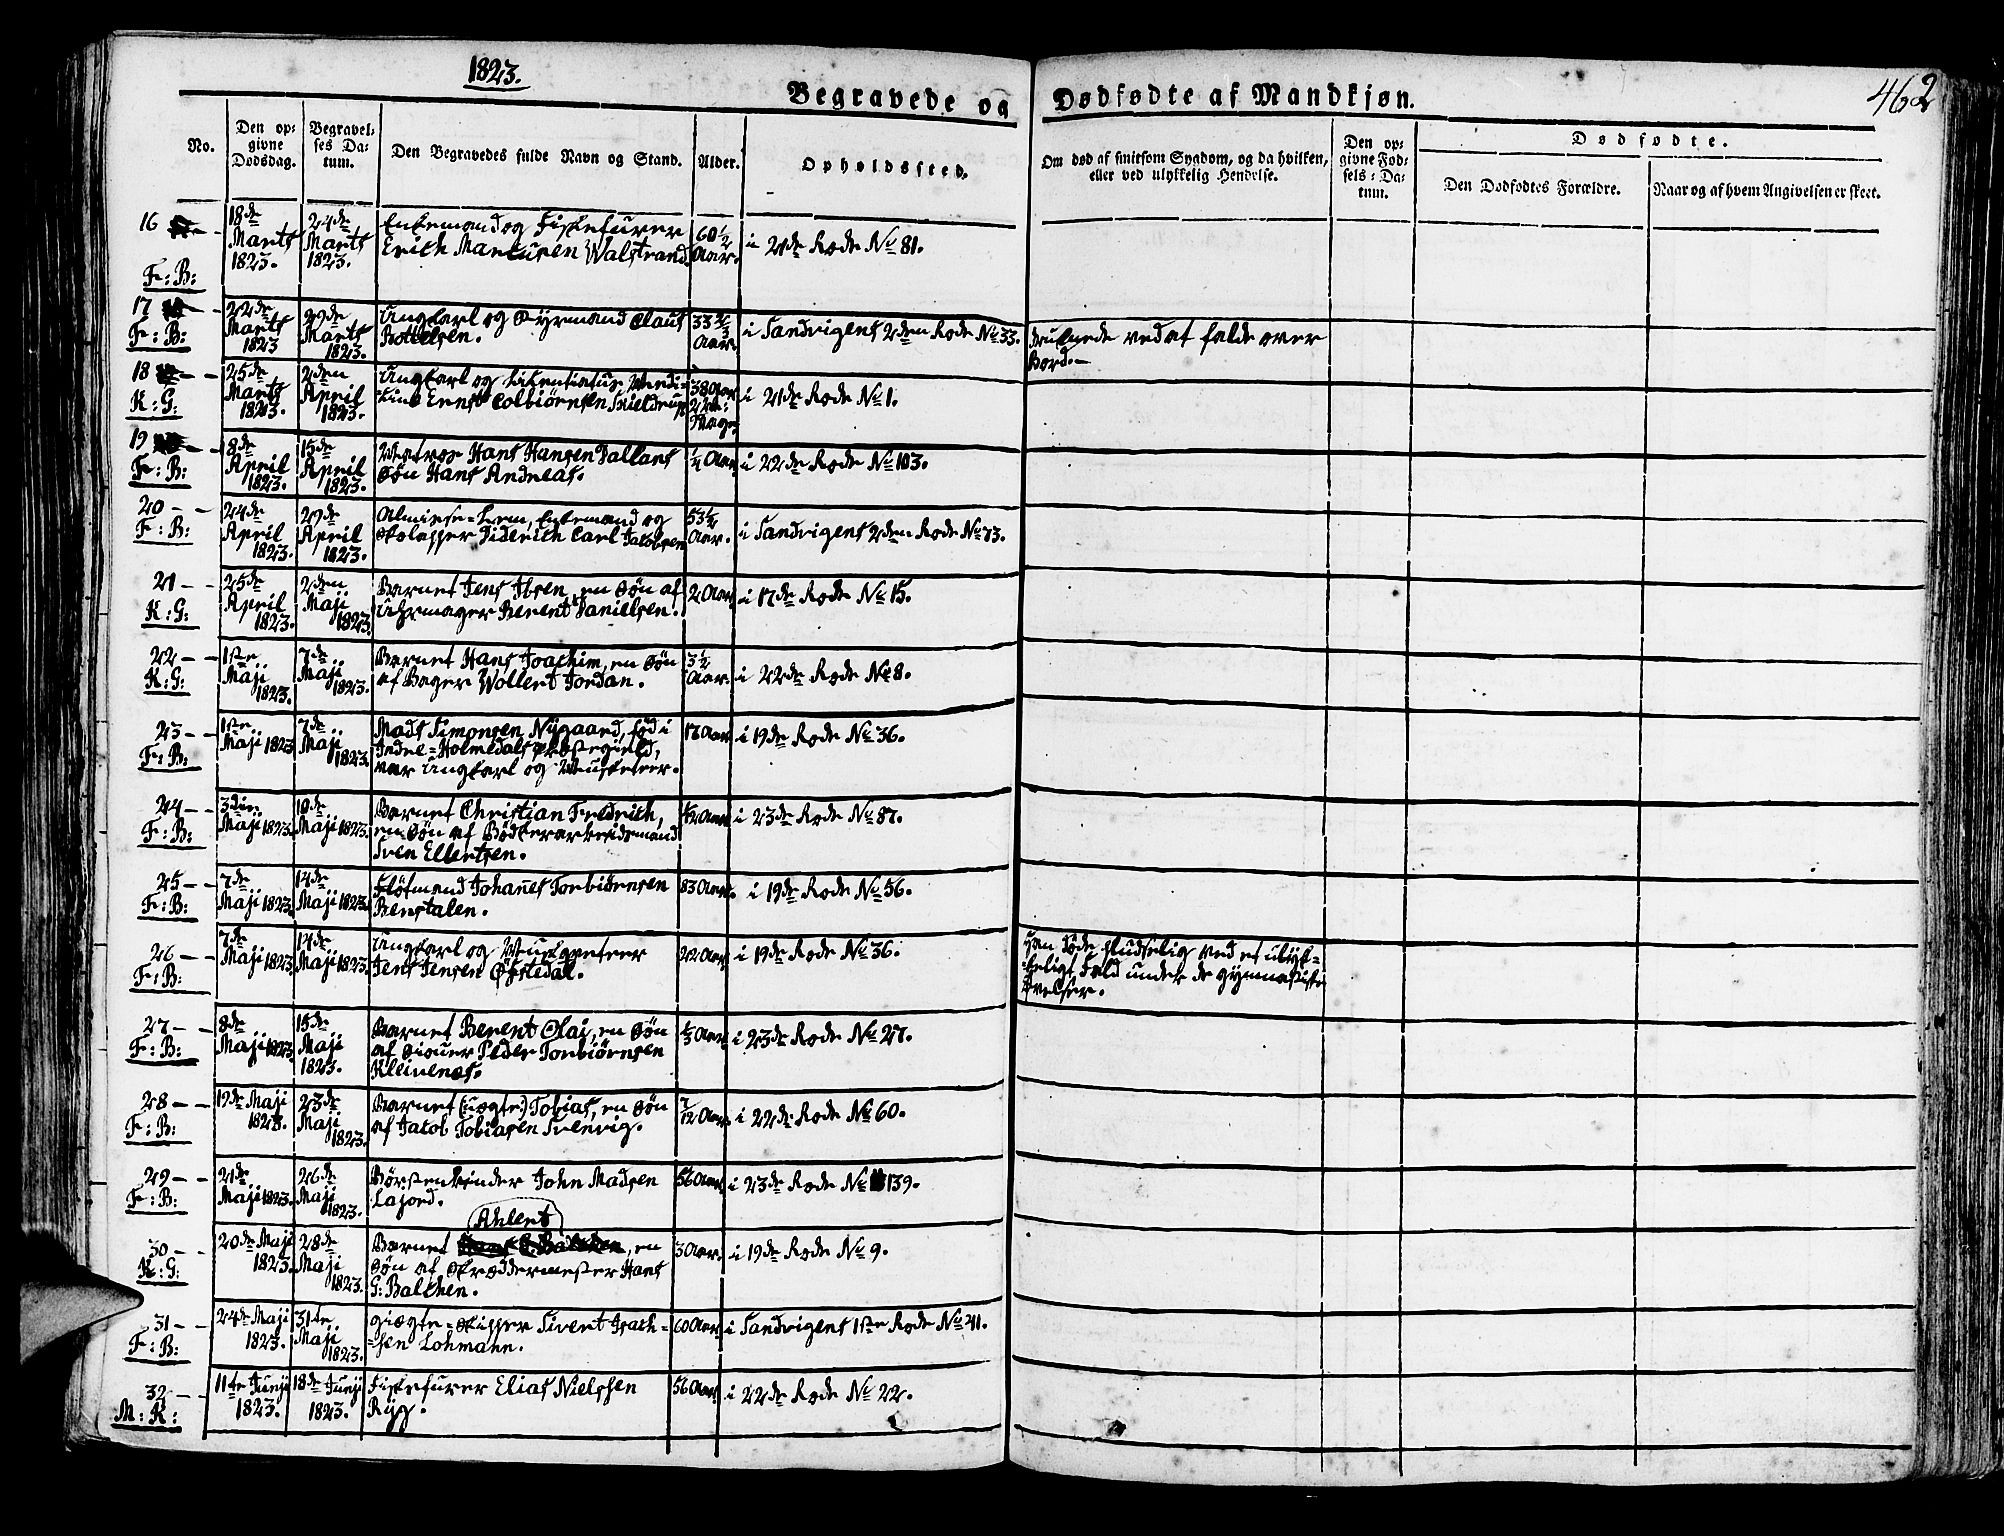 1823.
Begravede og Dødfødte af Mandkjøn.
462
No.
Den op-
givne
Dødsdag.
Begravel-
ses Da-
tum.
Den Begravedes fulde Navn og Stand.
Alder.
Opholdssted.
Om død af smitsom Sygdom, og da hvilken,
eller ved ulykkelig Hendelse.
Den op-
givne Fød-
sels-Da-
tum.
Dødfødte.
Den Dødfødtes Forældre.
Naar og af hvem Angivelsen er skeet.
16 F: B: 18de Marts 1823. 24de Marts 1823. Enkemand og Fiskefurer
Erich Marcusen Walstrand. 60 1/2 Aar. i 21de Rode No 81.
17 F: B: 22de Marts 1823 29de Marts 1823. Ungkarl og Styrmand Claus
Bottelsen. 33 Aar. i Sandvigens 2den Rode No 33. Druknede ved at falde over
Bord.
18 K: G: 25de Marts 1823. 2den April 1823. Ungkarl og
Ernst Colbiørnsen Skieldrup 38 Aar i 21de Rode No 1.
19 F: B: 8de April 1823. 15de April 1823. Matros Hans Hansen Dallans
Søn Hans Andreas. 1/4 Aar i 22de Rode No 103.
20 F: B: 24de April 1823. 29de April 1823. Almisse-Lem, Enkemand og
Skolapper Diderich Carl Jacobsen 53 1/2 Aar. i Sandvigens 2den Rode No 73.
21 K: G: 25de April 1823. 2den Maji 1823. Barnet Jens Ibsen, en Søn af
Uhrmager Berent Danielsen. 2 Aar i 17de Rode No 15.
22 K: G: 1ste Maji 1823. 7de Maji 1823. Barnet Hans Joachim, en Søn
af Bager Wollert Jordan. 3 1/2 Aar. i 22de Rode No 8.
23 F: B: 1ste Maji 1823 7de Maji 1823. Mads Simonsen Nygaard, fød i
Indre-Holmedals Præstegield,
var Ungkarl og Musketeer. 17 Aar i 19de Rode No 36.
24 F: B: 3die Maji 1823. 10de Maji 1823. Barnet Christian Fredrich,
en Søn af Bødkerarbeidsmand
Sven Ellertsen. 1/2 Aar i 23de Rode No 87.
25 F: B: 7de Maji 1823. 14de Maji 1823. Fløtmand Johanes Torbiørnsen
Benstalen. 83 Aar. i 19de Rode No 56.
26 F: B: 7de Maji 1823. 14de Maji 1823. Ungkarl og Musketeer
Jens Jensen Opstedal. 22 Aar i 19de Rode No 36. Han døde pludselig ved et ulyk-
keligt Fald under de gymnastiske
Øvelser.
27 F: B: 8de Maji 1823 15de Maji 1823. Barnet Berent Olai, en Søn
af Peder Torbiørnsen
Kleivenes. 1/3 Aar. i 23de Rode No 27.
28 F: B: 19de Maji 1823. 23de Maji 1823. Barnet (uægte) Tobias, en Søn
af Jacob Tobiasen Svenvig. 7/12 Aar i 22de Rode No 60.
29 F: B: 21de Maji 1823. 26de Maji 1823. Børstenbinder John Madsen
Lajord. 56 Aar. i 23de Rode No 139.
30 K: G: 20de Maji 1823. 28de Maji 1823. Ahlert
Barnet, en
Søn af Skræddermester Hans
G: Balchen. 3 Aar. i 19de Rode No 9.
31 F: B: 24de Maji 1823. 31te Maji 1823. giægte-Skipper Sivert Isach-
sen Lohmann. 60 Aar. i Sandvigens 1ste Rode No 41.
32 M: K: 11te Junji 1823. 18de Junji 1823. Fiskefurer Elias Nielssen
Ryg. 56 Aar i 22de Rode No 22.